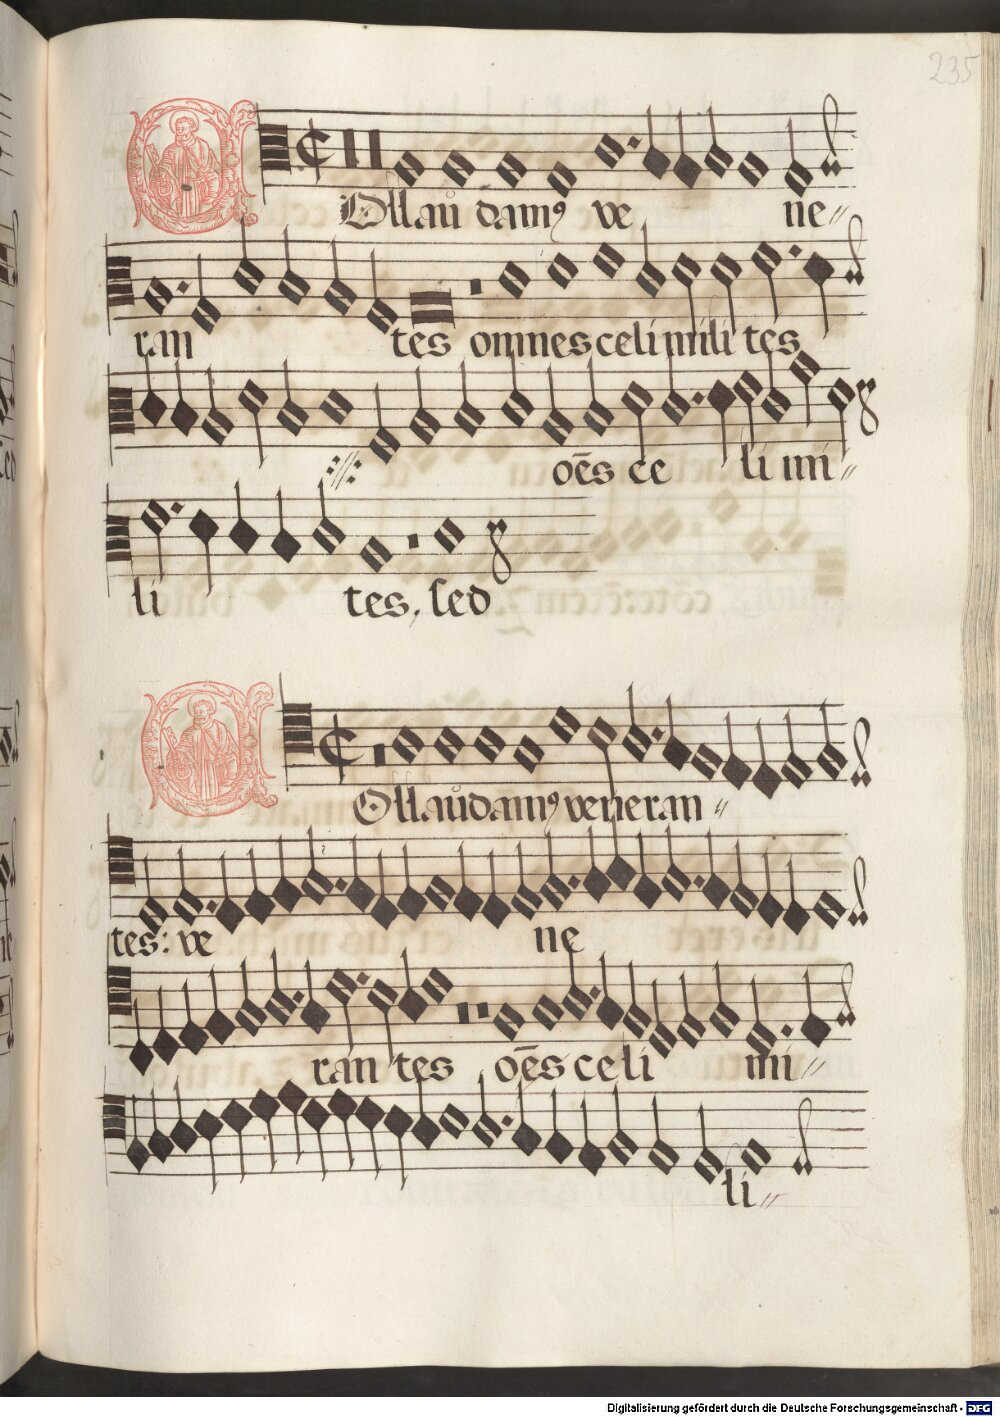 235
Collaudam⁹ ve ne〃
ran tes omnes celi mili tes
oēs ce li mi〃
li tes, sed
Collaudam⁹ veneran〃
tes: ve ne
ran tes oēs celi mi〃
li〃
Digitalisierung gefördert durch die Deutsche Forschungsgemeinschaft - DFG